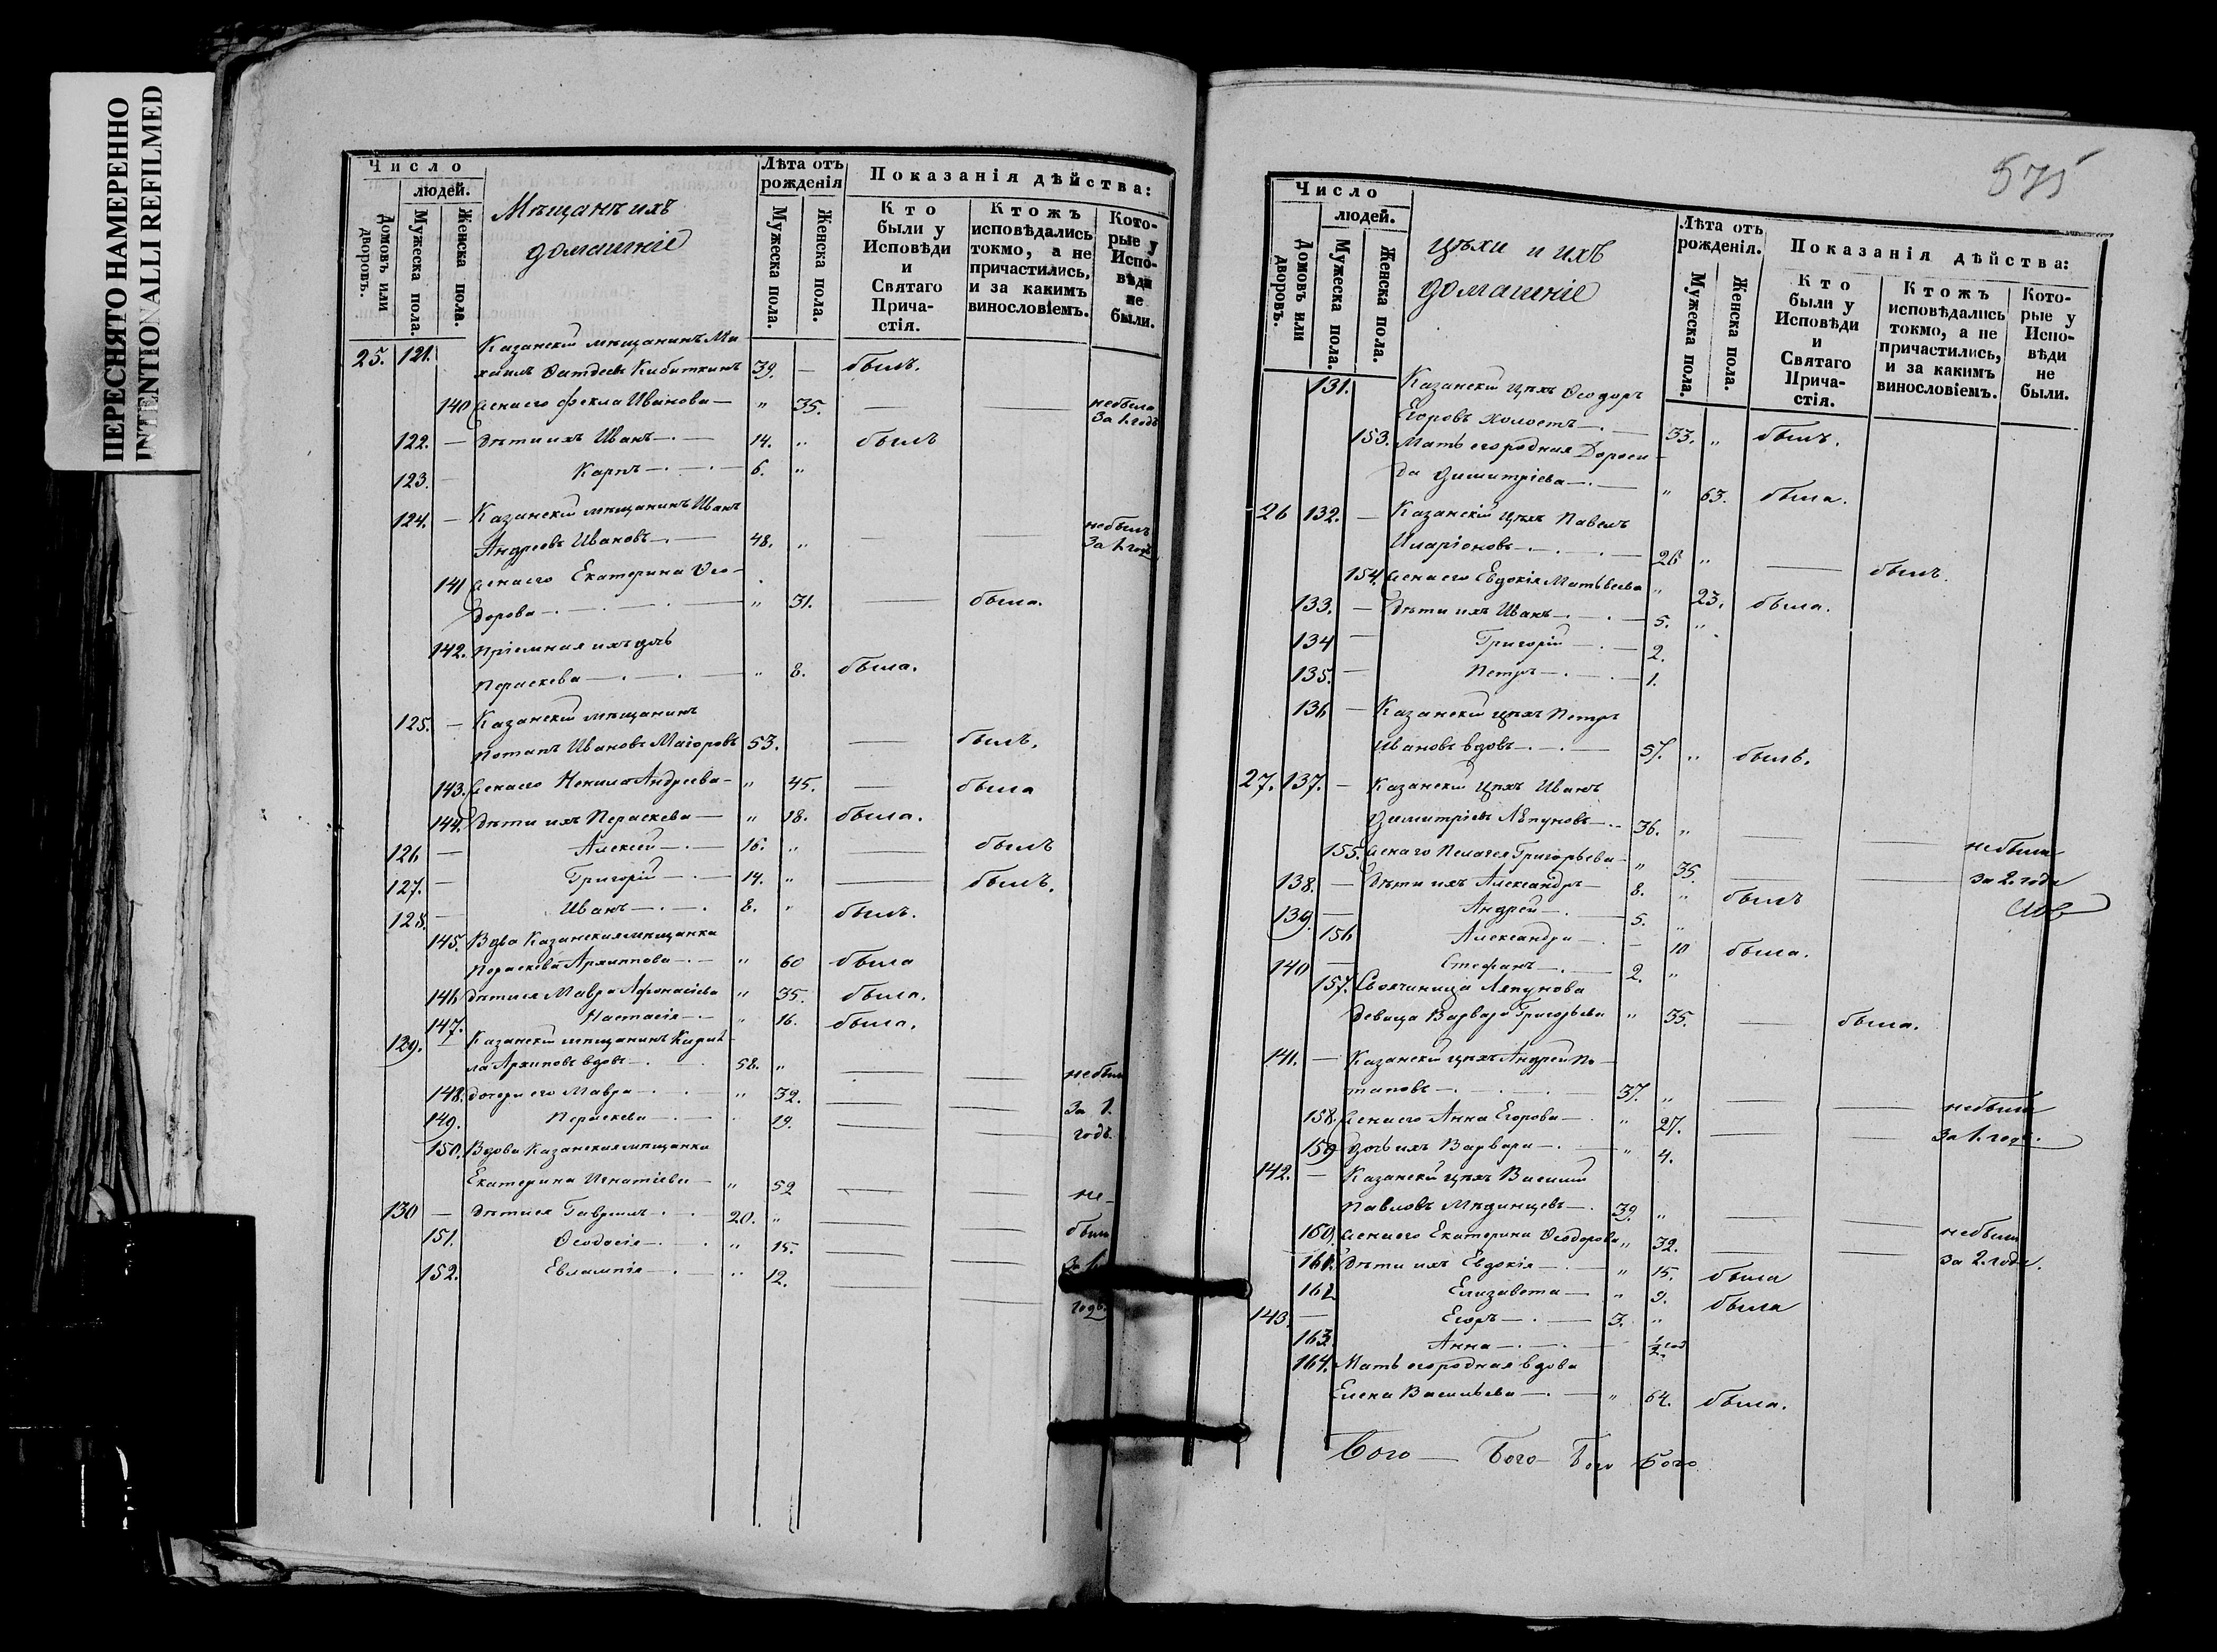 ПЕРЕСНЯТО НАМЕРЕННО
INTENTIONALLI REFILMED
Число
людей.
Домовъ или дворовъ.
Мужеска пола.
Женска пола.
Мѣщанъ ихъ
домашніе
Лѣта отъ рожденія
Мужеска пола.
Женска пола.
Показанія дѣйства:
Кто были у Исповѣди и Святаго Причастія.
Ктожъ исповѣдались токмо, а не причастились, и за какимъ винословіемъ.
Которые у Исповѣди не были.
25. 121. Казанскій мѣщанинъ Ми-
хаилъ Кибиткинъ 39. — былъ.
140 Жена его Фекла Иванова — " 35. — — не была
За 1. годъ
122. — Дѣти ихъ Иванъ — 14. " былъ
123. — Карпъ — 6. "
124. — Казанскій мѣщанинъ Иванъ
Андреевъ Ивановъ — 48. " — — не былъ
За 1. годъ
141 Жена его Екатерина Ѳео-
дорова — " 31. — была.
142. Пріемная ихъ дочь
Параскева — " 8. была.
125. — Казанскій мѣщанинъ
Потапъ Ивановъ Маіоровъ 53. — былъ.
143. Жена его Ненила Андреева — " 45. — была
144. Дѣти ихъ Параскева — " 18. была.
126 — Алексѣй — 16. " — былъ
127. — Григорій — 14. " — былъ.
128. — Иванъ — 8. " былъ.
145. Вдова Казанская мѣщанка
Параскева Архиппова — " 60 была
146 Дѣти ея Мавра Афонасіева " 35. была.
147. Настасія — " 16. была.
129. — Казанскій мѣщанинъ Кирил-
ла Архиповъ вдовъ — 58. " — — не были
148. Дочери его Мавра — " 32. — — За 1.
149. Параскева — 19. — — годъ.
150. Вдова Казанская мѣщанка
Екатерина Игнатіева — " 52 — — не-
130 — Дѣти ея Гавріилъ — 20. " — — были
151. Ѳеодосія — " 15. — —
152. Евлампія — " 12. — — годъ.
575
Число
людей.
Домовъ или дворовъ.
Мужеска пола.
Женска пола.
цѣхи и ихъ
домашніе
Лѣта отъ рожденія.
Мужеска пола.
Женска пола.
Показанія дѣйства:
Кто были у Исповѣди и Святаго Причастія.
Ктожъ исповѣдались токмо, а не причастились, и за какимъ винословіемъ.
Которые у Исповѣди не были.
131. Казанскій цѣхъ Ѳеодоръ
Егоровъ холостъ — 33. " былъ.
153. Мать его родная
Димитріева — " 63. была.
26 132. — Казанскій цѣхъ Павелъ
Иларіоновъ — 26 " — былъ.
154. Жена его Евдокія Матвѣева " 23. была.
133. — Дѣти ихъ Иванъ — 5. "
134 — Григорій — 2.
135. — Петръ — 1.
136 — Казанскій цѣхъ Петръ
Ивановъ вдовъ — 57. " былъ.
27. 137. — Казанскій цѣхъ Иванъ
Димитріевъ Ляпуновъ — 36. " — не были
155. Жена его Пелагея Григорьева — " 35. — за 2. года
138. — Дѣти ихъ Александръ — 8. " былъ
139. — Андрей — 5. "
156 Александра — 10 была.
140 — Стефанъ — 2. "
157. Своячиница Ляпунова
девица Варвара Григорьева " 35. — была.
141. — Казанскій цѣхъ Андрей По-
таповъ — 37. " — — не были
158. Жена его Анна Егорова — " 27. — — За 1. годъ.
159 Дочь ихъ Варвара — " 4.
142. — Казанскій цѣхъ Василій
Павловъ Мядинцевъ — 39. " — — не были
160. Жена его Екатерина Ѳеодорова " 32. — — за 2. года.
161. Дѣти ихъ Евдокія — " 15. была
162 Елизавета — " 9. была
143. — Егоръ — 3. "
163. Анна — ½ год
164. Мать его родная вдова
Елена Васильева — " 64. была.